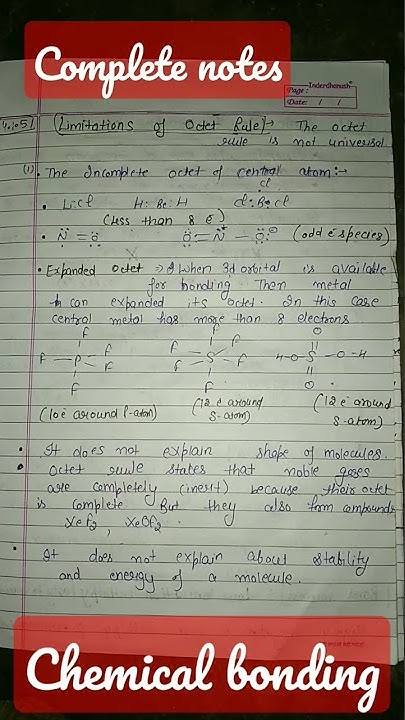 Complete notes
Inderdhanush
Page:
Date: / /
4.1.5) (Limitations of Octet Rule):- The octet
rule is not universal
(1). The Incomplete octet of central atom:-
Cl
• Li:Cl H:Be:H Cl:B:Cl
(less than 8 e⁻)
• N=O O=N-O (odd e⁻ species)
• Expanded octet => When 3d orbital is available
for bonding. Then metal
can expanded its octet. In this case
central metal has more than 8 electrons.
F F O
F F F F
F-P F S F H-O-S-O-H
F F F O
(10e⁻ around P-atom) (12e⁻ around S-atom) (12e⁻ around S-atom)
• It does not explain shape of molecules.
• Octet rule states that noble gases
are completely (inert) because their octet
is complete But they also form compounds
XeF2, XeOF2.
• It does not explain about stability
and energy of a molecule.
Chemical bonding